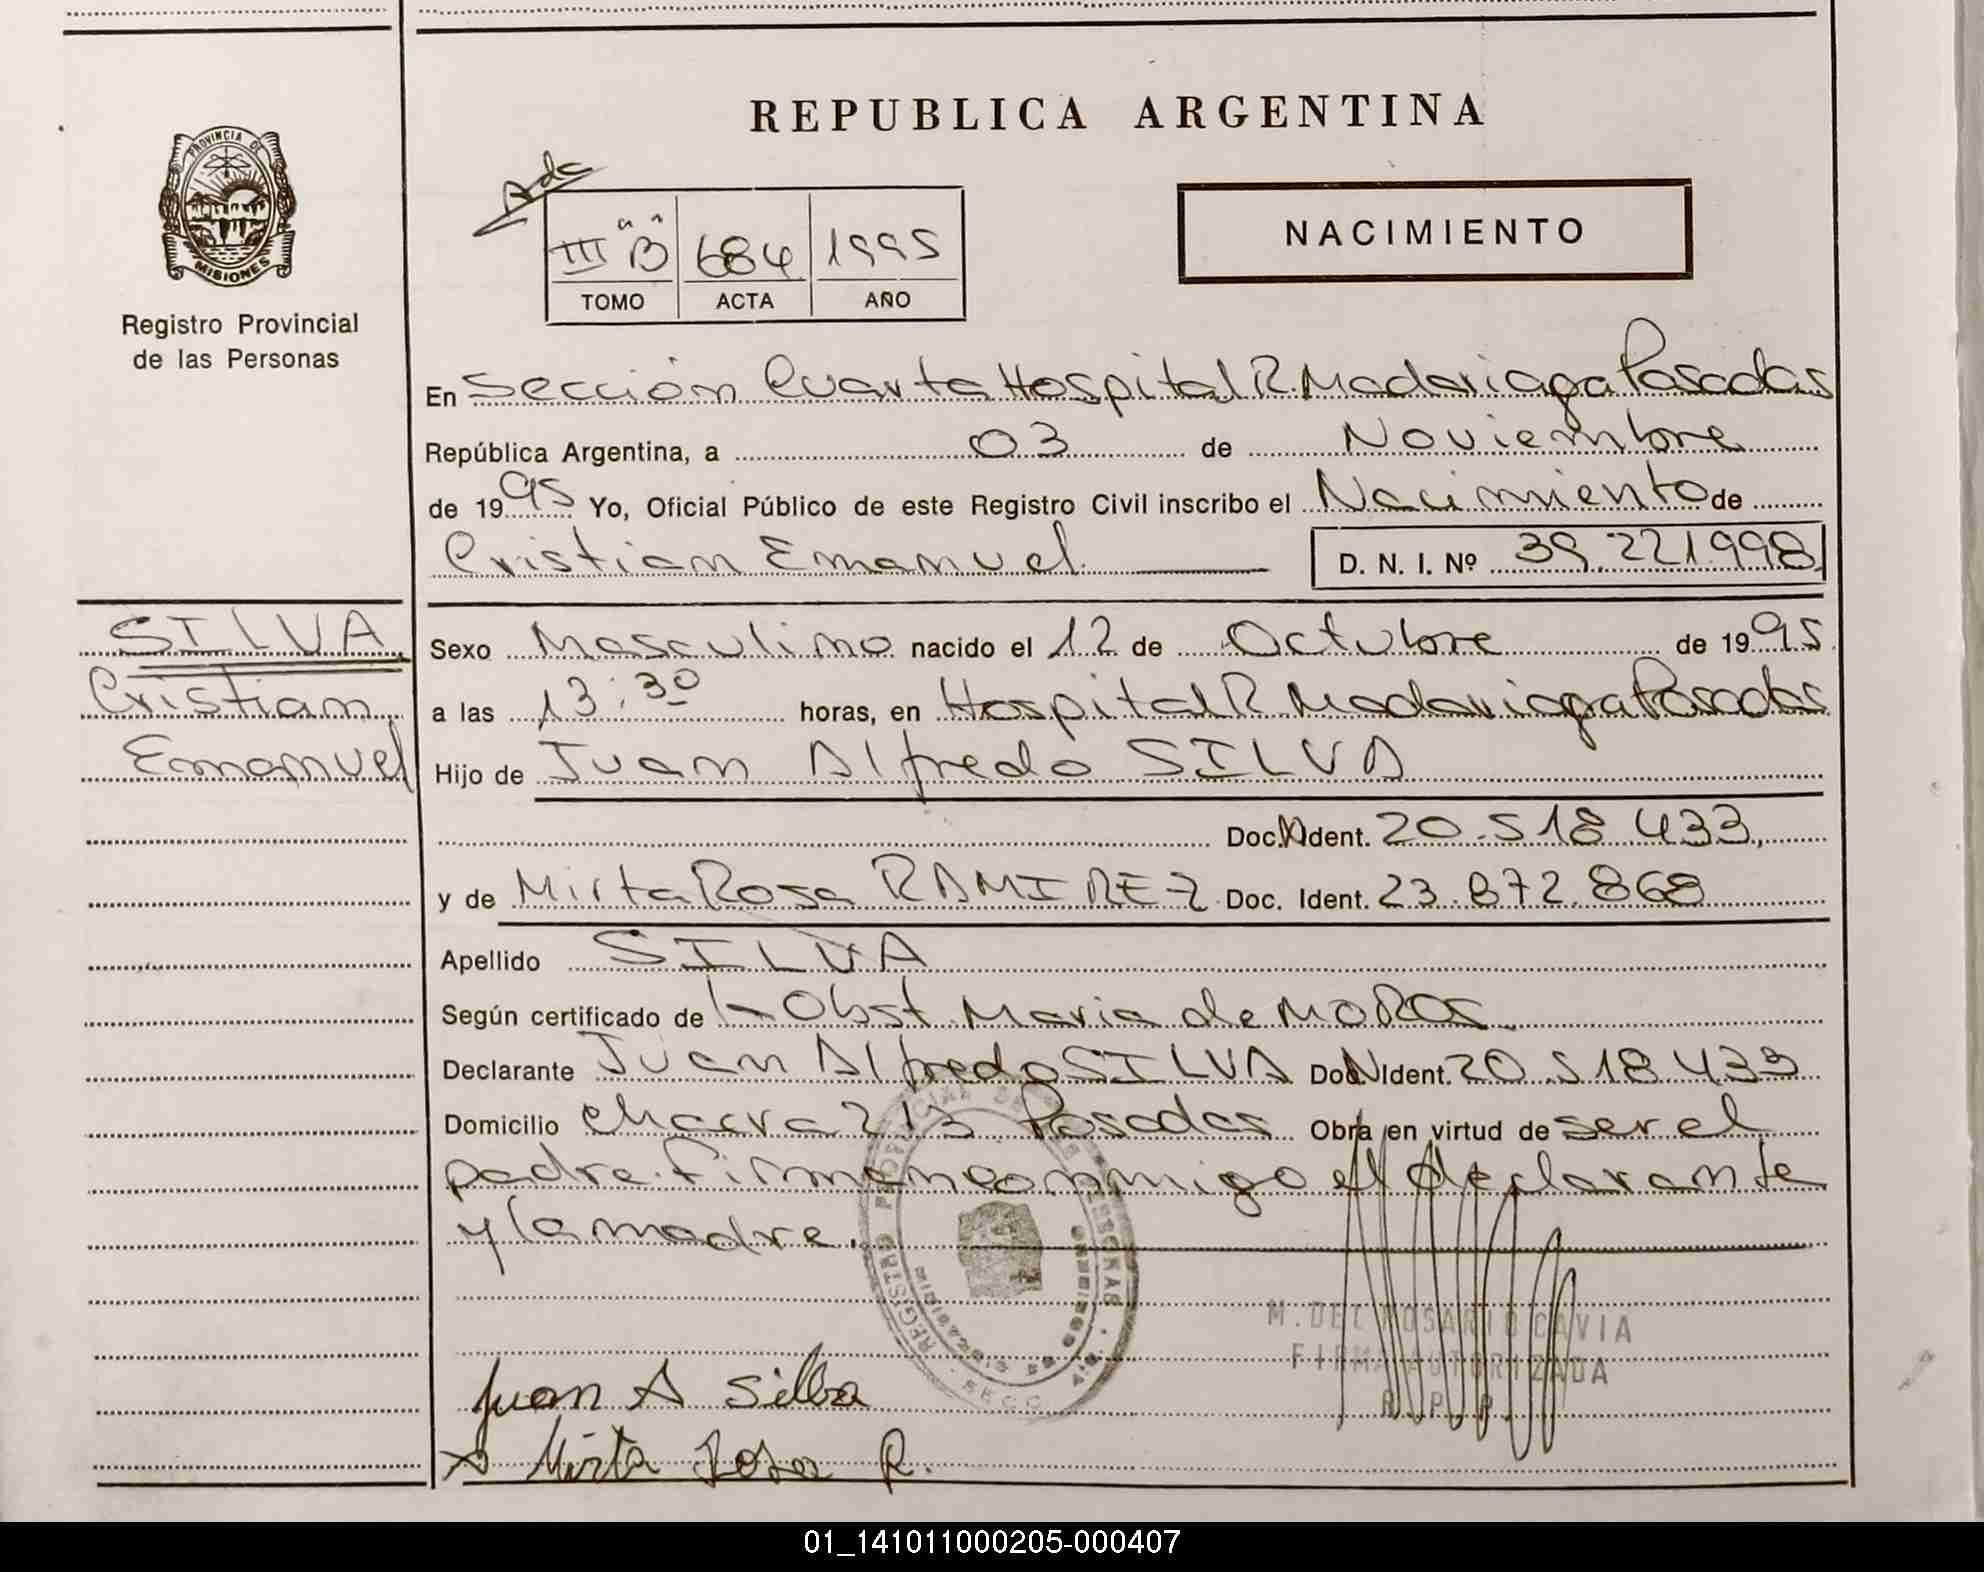 REPUBLICA ARGENTINA
PROVINCIA DE
MISIONES
Registro Provincial
de las Personas
Adc
III "B" 684 1995
TOMO ACTA AÑO
NACIMIENTO
En Sección Cuarta Hospital R. Madariaga Posadas
República Argentina, a 03 de Noviembre
de 1995 Yo, Oficial Público de este Registro Civil inscribo el Nacimiento de
Cristian Emanuel D. N. I. Nº 39.221998
SILVA
Cristian
Emanuel
Sexo Masculino nacido el 12 de Octubre de 1995
a las 13:30 horas, en Hospital R Madariaga Posadas
Hijo de Juan Alfredo SILVA
Doc. Ident. 20.518.433
y de Mirta Rosa RAMIREZ Doc. Ident. 23.872.868
Apellido SILVA
Según certificado de la Obst Maria de MOROS
Declarante Juan Alfredo SILVA Doc. Ident. 20.518433
Domicilio chacra 213 Posadas Obra en virtud de ser el
padre. Firman conmigo el declarante
y la madre.
REGISTRO PROVINCIAL DE LAS PERSONAS
M. DEL ROSARIO CAVIA
FIRMA AUTORIZADA
R. P. P.
Juan A Silba
x Mirta Rosa R.
01_141011000205-000407